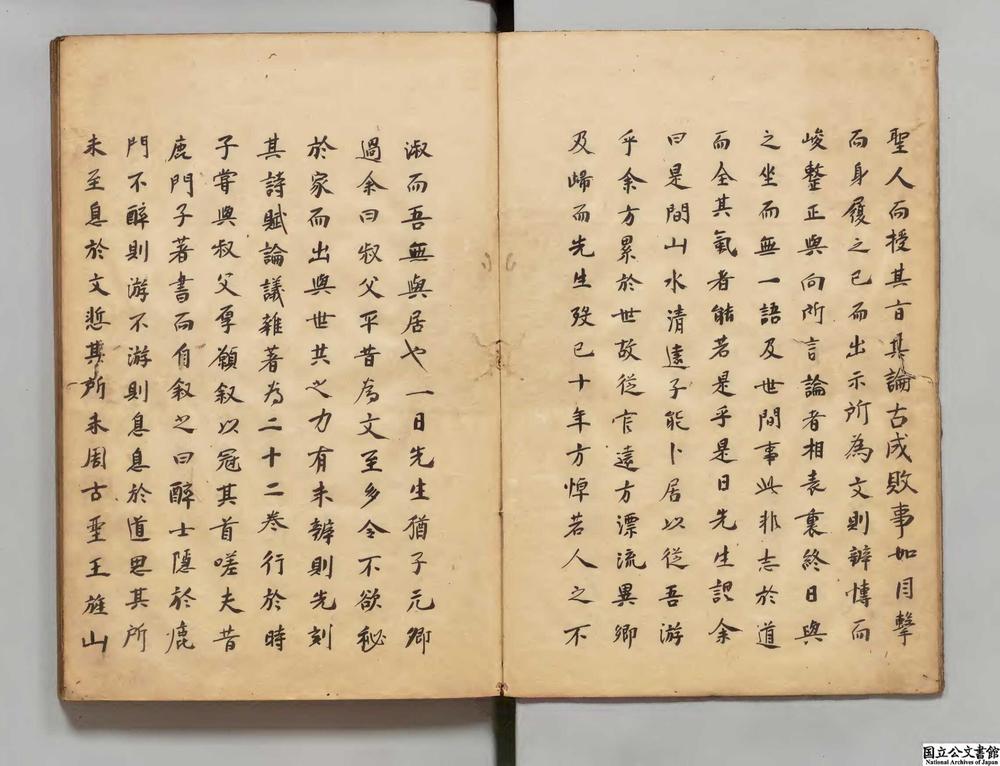 聖人而授其言其論古成敗事如目擊
而身履之已而出示所為文則辨博而
峻整正與向所言論者相表裏終日與
之坐而無一語及世間事此非志於道
而全其氣者能若是乎是日先生謂余
曰是間山水清遠子能卜居以從吾游
乎余方累於世故従官遠方漂流異鄉
及歸而先生歿已十年方悼若人之不
淑而吾無與居也一日先生猶子元卿
過余曰叔父平昔為文至多今不欲秘
於家而出與世共之力有未辦則先刻
其詩賦論議雜著為二十二卷行於時
子嘗與叔父厚願叙以冠其首嗟夫昔
鹿門子著書而自叙之曰醉士隱於鹿
門不醉則游不游則息息於道思其所
未至息於文慙其所未周古聖王旌山
国立公文書館
National Archives of Japan